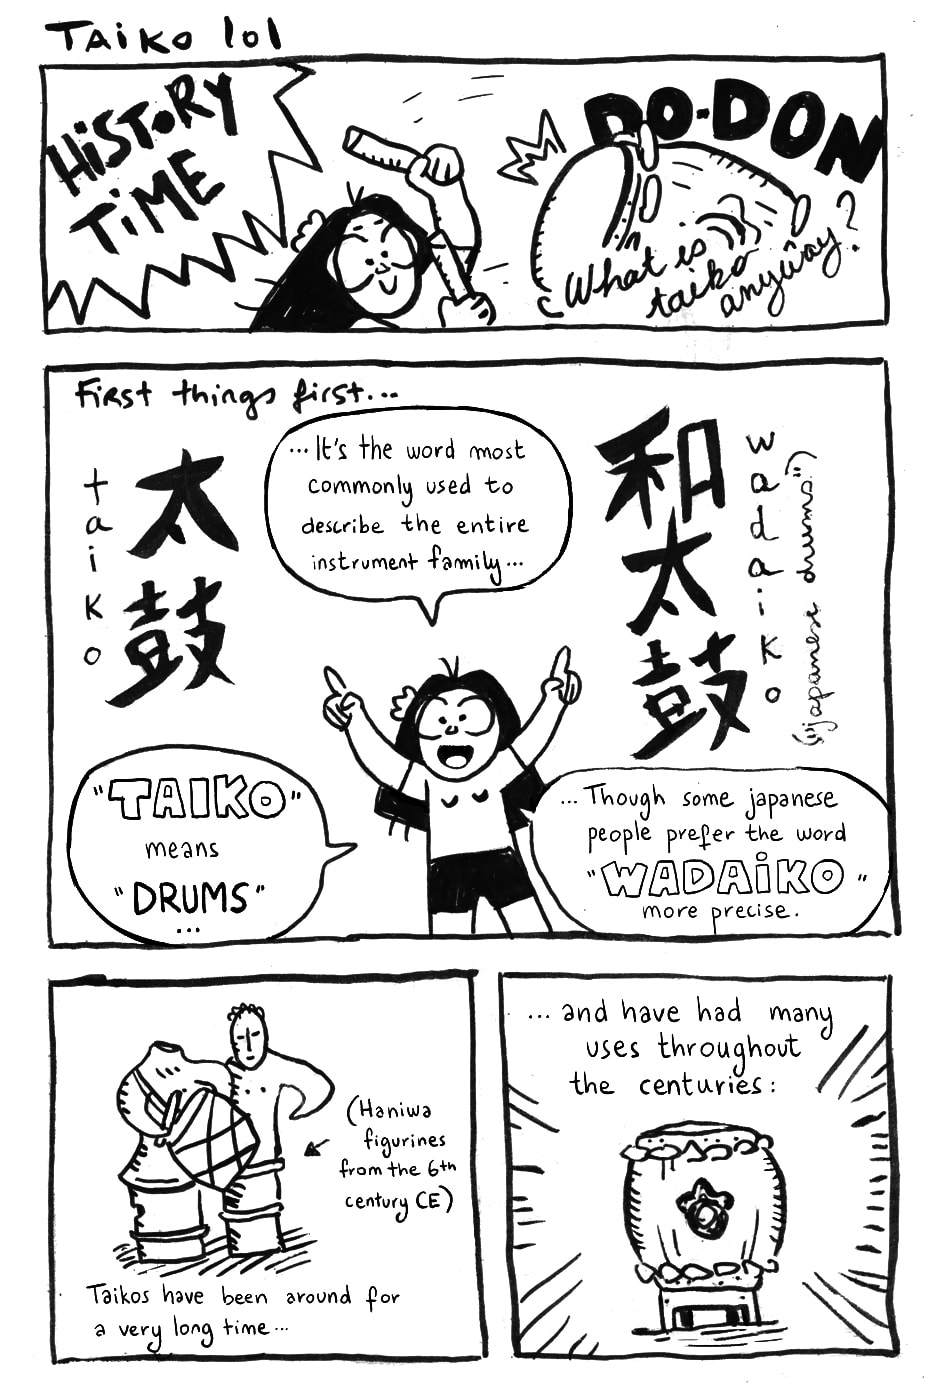 Taiko lol
HiSTORY
TiME
DO-DON
What is
taiko
anyway?
First things first...
taiko
太鼓
...It's the word most
commonly used to
describe the entire
instrument family...
和太鼓
wadaiko
(japanese drums)
"TAIKO"
means
"DRUMS"
...
...Though some japanese
people prefer the word
"WADAiKO"
more precise.
(Haniwa
figurines
from the 6th
century CE)
Taikos have been around for
a very long time...
...and have had many
uses throughout
the centuries: